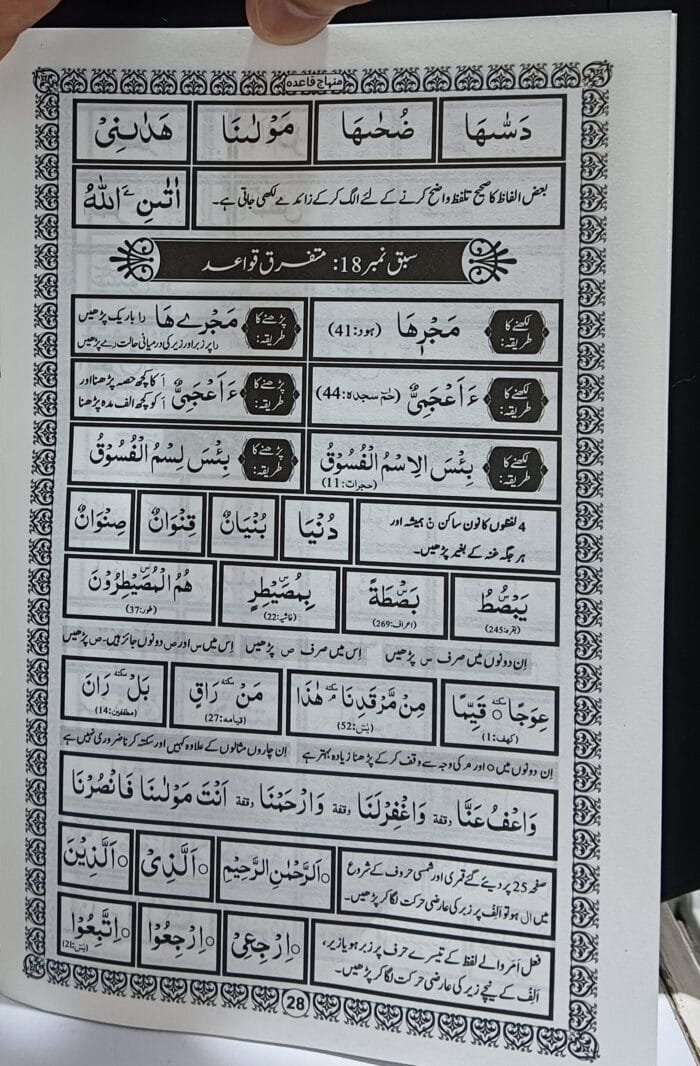 منہاج قاعدہ
دَسّٰىهَا ضُحٰىهَا مَوْلٰىنَا هَدٰىنِیْ
بعض الفاظ کا صحیح تلفظ واضح کرنے کے لئے الگ کر کے زائد ے لکھی جاتی ہے۔ اٰتٰىنِۦَ اللّٰهُ
سبق نمبر 18: متفرق قواعد
لکھنے کا طریقہ: مَجْرٖىهَا (ہود:41) پڑھنے کا طریقہ: مَجْرےهَا را باریک پڑھیں
را پر زبر اور زیر کی درمیانی حالت رے پڑھیں
لکھنے کا طریقہ: ءَاَعْجَمِیٌّ (حٰمٓ سجدہ:44) پڑھنے کا طریقہ: ءَاَعْجَمِیٌّ اَ کا کچھ حصہ پڑھنا اور
اَ کو کچھ الف مدہ پڑھنا
لکھنے کا طریقہ: بِئْسَ الِاسْمُ الْفُسُوْقُ (حجرات:11) پڑھنے کا طریقہ: بِئْسَ لِسْمُ الْفُسُوْقُ
4 لفظوں کا نون ساکن نْ ہمیشہ اور
ہر جگہ غنہ کے بغیر پڑھیں۔
دُنْيَا بُنْيَانٌ قِنْوَانٌ صِنْوَانٌ
يَبْصُۜطُ (بقرہ:245) بَصْۜطَةً (اعراف:269) بِمُصَۜيْطِرٍ (غاشیہ:22) هُمُ الْمُصَۜيْطِرُوْنَ (طور:37)
اِن دونوں میں صرف س پڑھیں اِس میں صرف ص پڑھیں اِس میں س اور ص دونوں جائز ہیں۔ ص پڑھیں
عِوَجًا سکتہ ○ قَيِّمًا (کہف:1) مِنْ مَّرْقَدِنَا سکتہ مۘ هٰذَا (یٰسٓ:52) مَنْ سکتہ رَاقٍ (قیامہ:27) بَلْ سکتہ رَانَ (مطففین:14)
اِن دونوں میں ○ اور مـ کی وجہ سے وقف کر کے پڑھنا زیادہ بہتر ہے اِن چاروں مثالوں کے علاوہ کہیں اور سکتہ کرنا ضروری نہیں ہے
وَاعْفُ عَنَّا وقفة وَاغْفِرْلَنَا وقفة وَارْحَمْنَا وقفة اَنْتَ مَوْلٰىنَا فَانْصُرْنَا
صفحہ 25 پر دیئے گئے قمری اور شمسی حروف کے شروع
میں ال ہو تو اَلِف پر زبر کی عارضی حرکت لگا کر پڑھیں۔
○اَلرَّحْمٰنِ الرَّحِيْمِ ○اَلَّذِیْ ○اَلَّذِيْنَ
فعل اَمر والے لفظ کے تیسرے حرف پر زبر ہو یا زیر،
اَلِف کے نیچے زیر کی عارضی حرکت لگا کر پڑھیں۔
○اِرْجِعِیْ ○اِرْجِعُوْا ○اِتَّبِعُوْا (یٰسٓ:21)
28